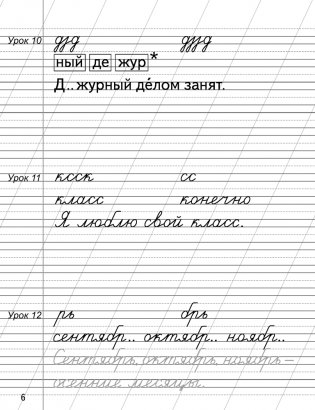 Урок 10 дуд дууд
ный де жур*
Д.. журный де́лом занят.
Урок 11 ксск сс
класс конечно
Я люблю свой класс.
Урок 12 рь брь
сентябр.. октябр.. ноябр..
Сентябрь, октябрь, ноябрь –
осенние месяцы.
6